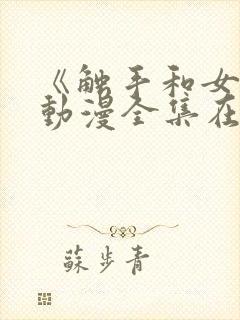 《触手和女
动漫全集在
苏步青